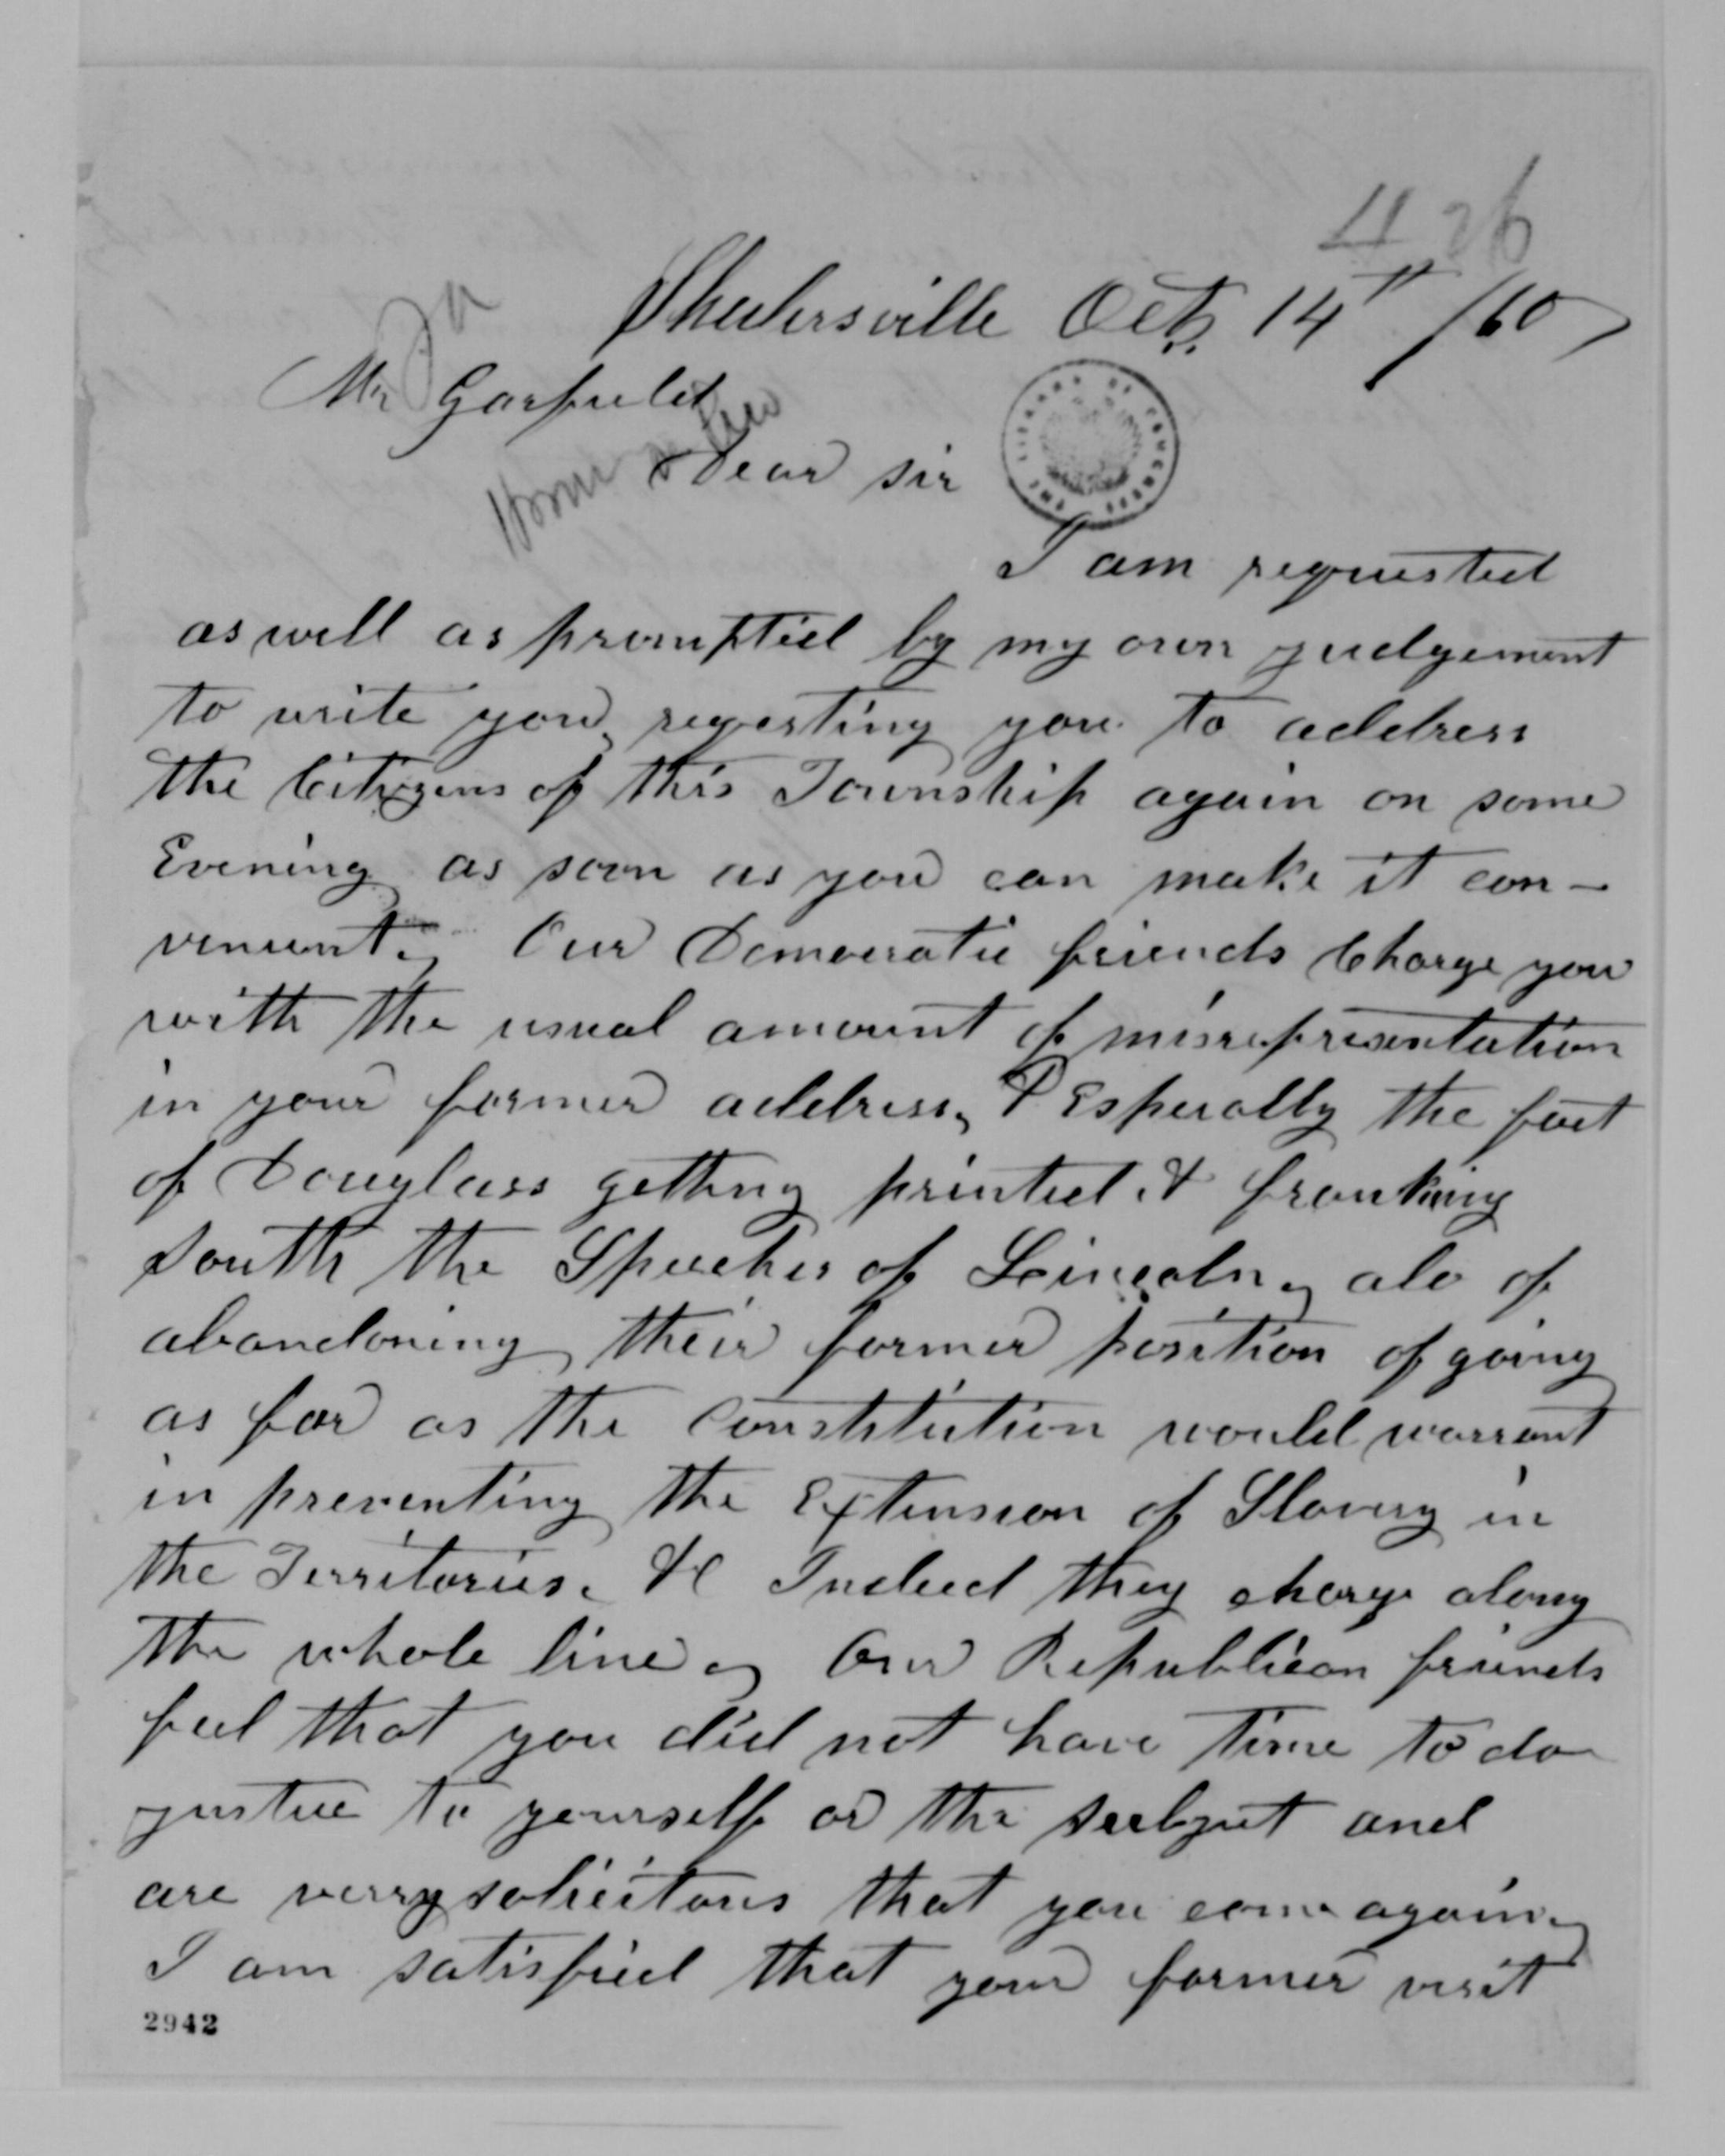 426
Shalersville Oct 14th /60
Mr Garfield
Dear sir
I am requested
as well as prompted by my own judgement
to write you, reqesting you to address
the Citizens of this Township again on some
Evening as soon as you can make it con-
venient. Our Democratic friends Charge you
with the usual amount of misrepresentation
in your former address, & Esperally the fact
of Douglass getting printed & franking
South the Speeches of Lincoln, alo of
abandoning their former position of going
as far as the Constitution would warrant
in preventing the Extension of Slavery in
the Territories. &c Indeed they charge along
the whole line, Our Republican friends
feel that you did not have time to do
justice to yourself or the subject and
are verry solicitous that you come again,
I am satisfied that your former visit
2942